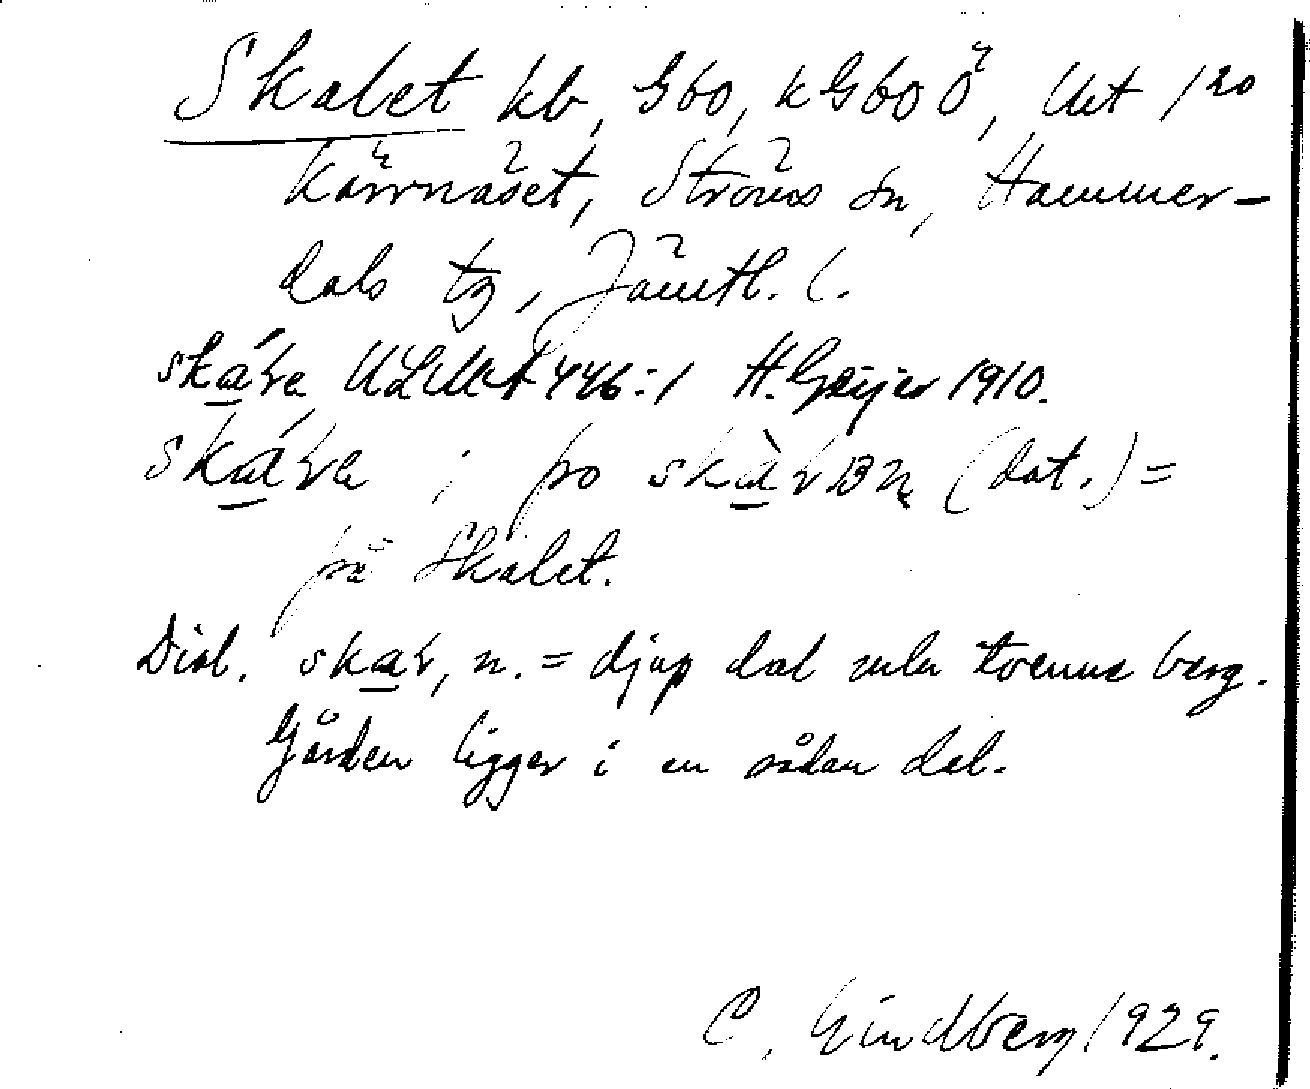 Skalet kb, G60, kG60Ö, Ut 1²⁰
Kärrnäset, Ströms sn, Hammer-
dals tg, Jämtl. l.
ULMA 446:1 H. Geijer 1910.
; po (dat.) =
på Skalet.
Dial. skal, n. = djup dal mla tvenne berg.
Gården ligger i en sådan dal.
C. Lindberg 1929.